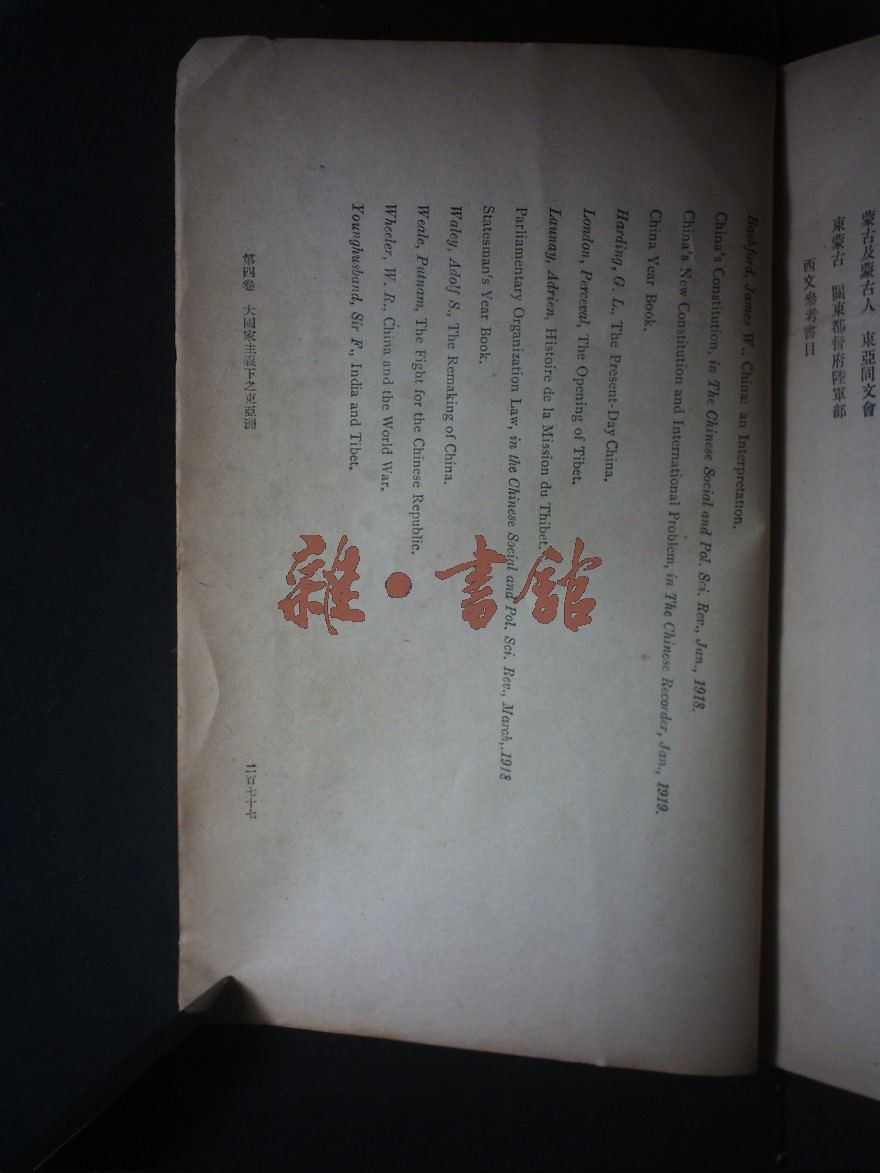 蒙古及蒙古人　東亞同文會
東蒙古　關東都督府陸軍部
西文參考書目
Bashford, James W., China: an Interpretation.
China's Constitution, in The Chinese Social and Pol. Sci. Rev., Jan., 1918.
China's New Constitution and International Problem, in The Chinese Recorder, Jan., 1919.
China Year Book.
Harding, G. L., The Present-Day China.
London, Perceval, The Opening of Tibet.
Launay, Adrien, Histoire de la Mission du Thibet.
Parliamentary Organization Law, in the Chinese Social and Pol. Sci. Rev., March, 1918
Statesman's Year Book.
Waley, Adolf S., The Remaking of China.
Weale, Putnam, The Fight for the Chinese Republic.
Wheeler, W. R., China and the World War.
Younghusband, Sir F., India and Tibet.
第四卷　大國家主義下之
雜・書館